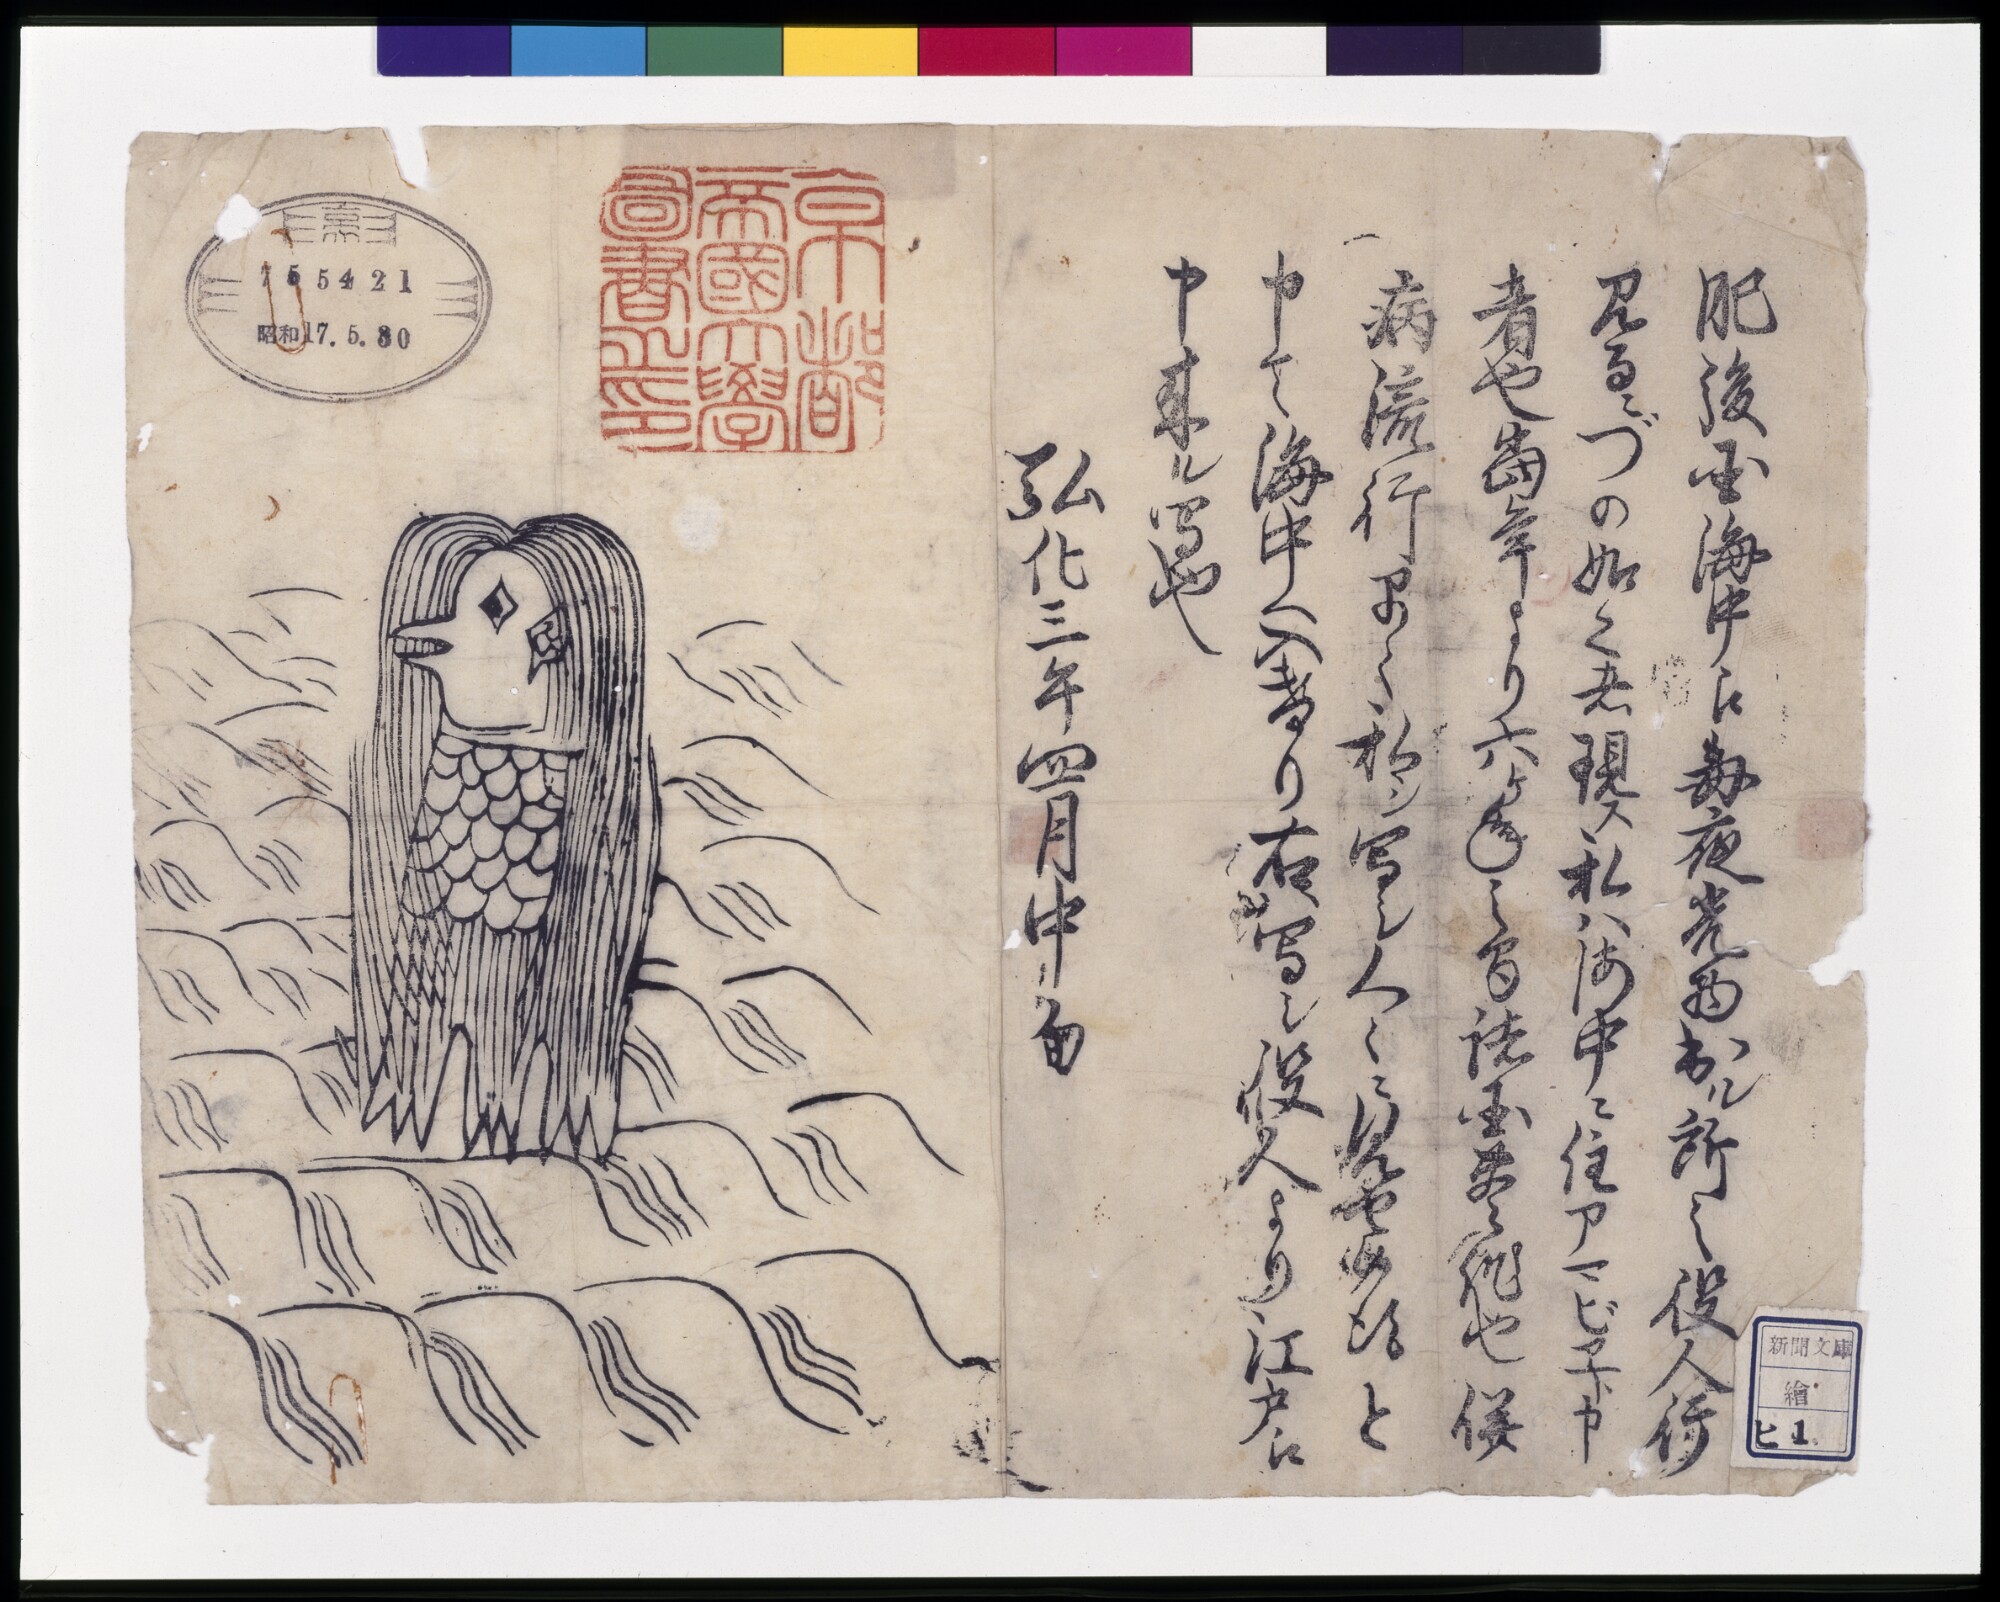 肥後国海中江毎夜光物出ル所之役人行
見るニづの如く者現ス私ハ海中ニ住アマビヱト申
者也當年より六ヶ年之間諸国豊作也併
病流行早々私シ写シ人々ニ見セ候得と
申て海中へ入けり右ハ写シ役人より江戸江
申来ル写也
弘化三年四月中旬
京都
帝國大學
圖書之印
755421
昭和17.5.30
新聞文庫
繪
ヒ 1